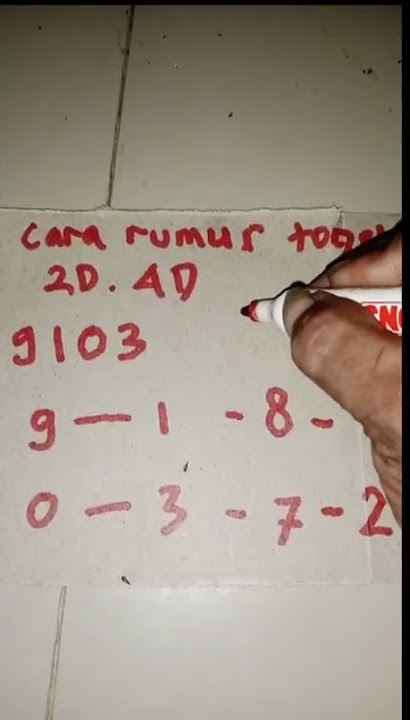 Cara rumus togel
2D. 4D
9103
9 — 1 - 8 -
0 — 3 - 7 - 2